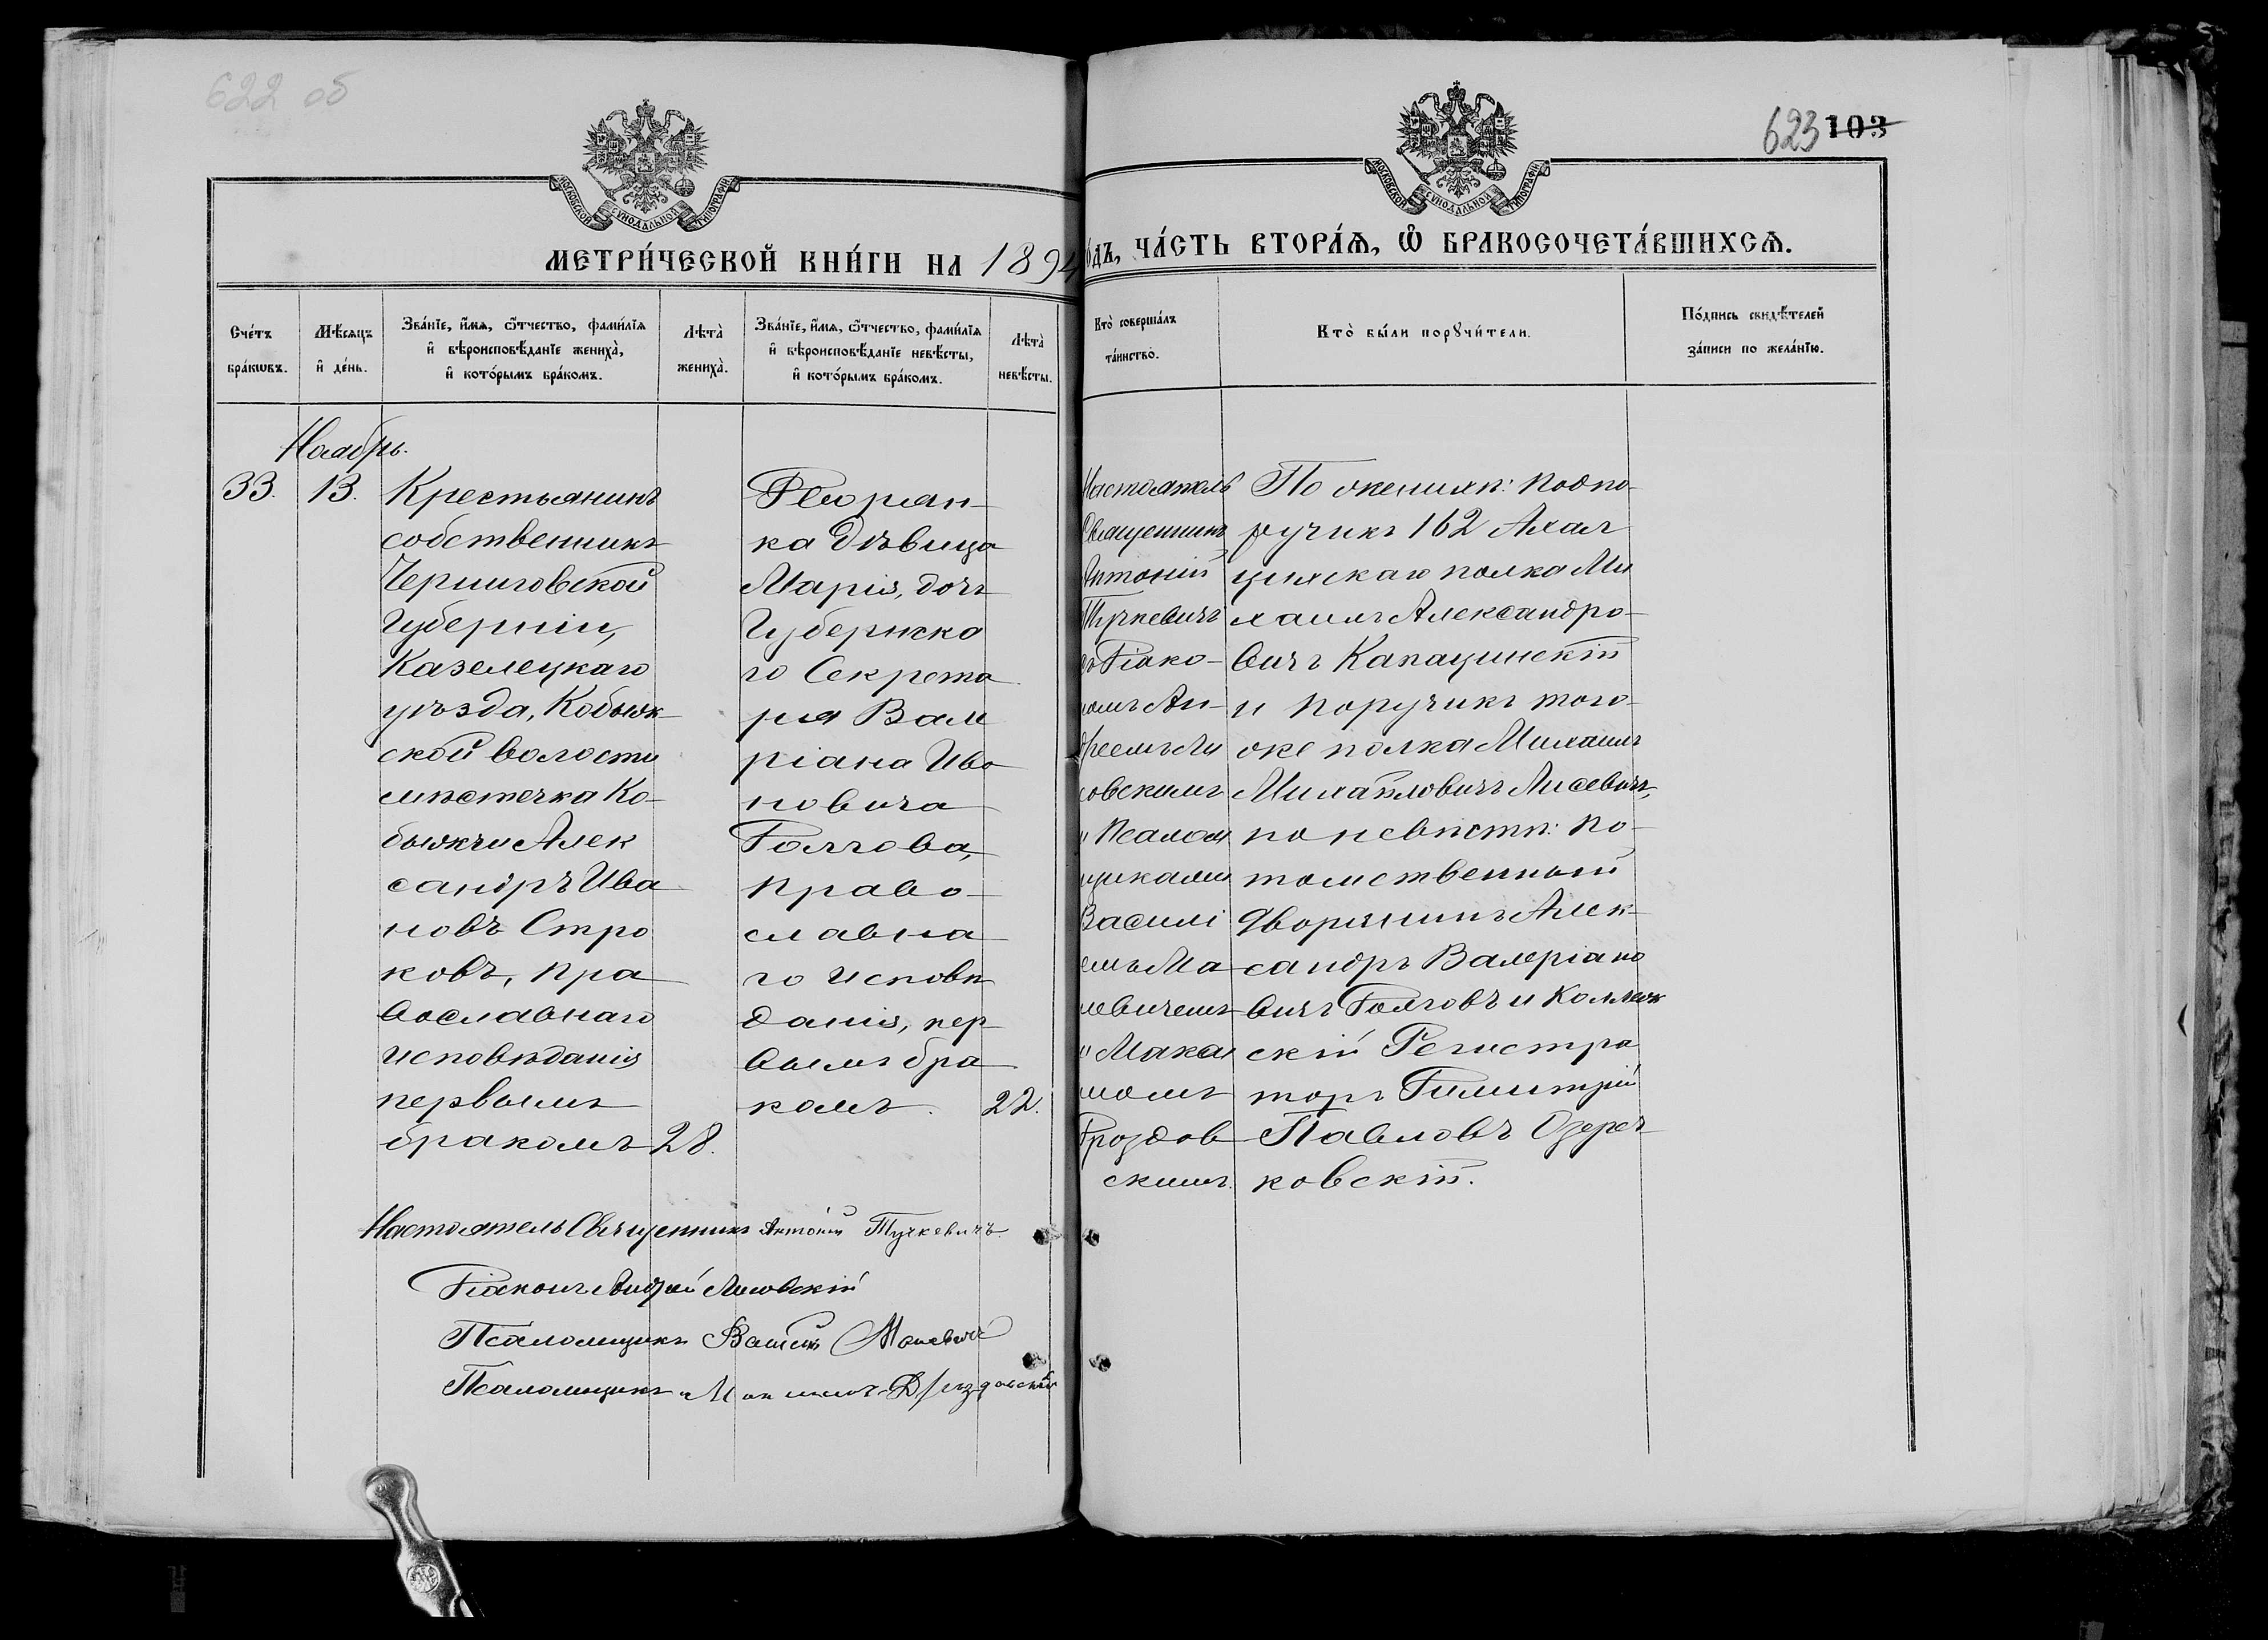 622 об
623 103
МОСКОВСКОЙ СУНОДАЛЬНОЙ ТИПОГРАФІИ
МОСКОВСКОЙ СУНОДАЛЬНОЙ ТИПОГРАФІИ
МЕТРИ́ЧЕСКОЙ КНИ́ГИ НА 1894
О́ДЪ, ЧА́СТЬ ВТОРА́Ѧ, Ѡ҆ БРАКОСОЧЕТА́ВШИХСѦ.
Сче́тъ бра́кѡвъ.
Мѣ́сѧцъ и҆ де́нь.
Зва́нїе, и҆́мѧ, ѻ҆́тчество, фами́лїѧ
и҆ вѣроисповѣ́данїе жениха̀,
и҆ кото́рымъ бра́комъ.
Лѣта̀ жениха̀.
Зва́нїе, и҆́мѧ, ѻ҆́тчество, фами́лїѧ
и҆ вѣроисповѣ́данїе невѣ́сты,
и҆ кото́рымъ бра́комъ.
Лѣта̀ невѣ́сты.
Кто̀ соверша́лъ
та́инство.
Кто̀ бы́ли порꙋчи́тели.
По́дпись свидѣ́телей
за́писи по жела́нїю.
Ноябрь.
33. 13.
Крестьянинъ
собственникъ
Черниговской
Губерніи,
Казелецкаго
уѣзда, Кобыж-
ской волости
мѣстечка Ко-
быжчи Алек
сандръ Ива
новъ Стро
ковъ, пра
вославнаго
исповѣданія
первымъ
бракомъ 28.
Дворян-
ка дѣвица
Марія, дочь
Губернска
го Секрета
ря Вале
ріана Ива
новича
Долгова,
право-
славна
го исповѣ
данія, пер
вымъ бра
комъ. 22.
Настоятель
Священникъ
Антоній
Тучкевичъ
съ Діако-
номъ Ан-
дреемъ Ли
совскимъ
и Псалом
щиками
Василі
емъ Ма
невичемъ
и Макси
момъ
Дроздов
скимъ.
По женихѣ: подпо-
ручикъ 162 Ахал
цихскаго полка Ми
хаилъ Александро-
вичъ Капацинскій
и поручикъ того-
же полка Михаилъ
Михайловичъ Лисевичъ,
по невѣстѣ: по-
томственный
дворянинъ Алек-
сандръ Валеріано
вичъ Долговъ и Коллеж
скій Регистра
торъ Димитрій
Павловъ Озереч
ковскій.
Настоятель Священникъ Антоній Тучкевичъ.
Діаконъ Андрей Лисовскій
Псаломщикъ Василій Маневичъ
Псаломщикъ Максимъ Дроздовскій